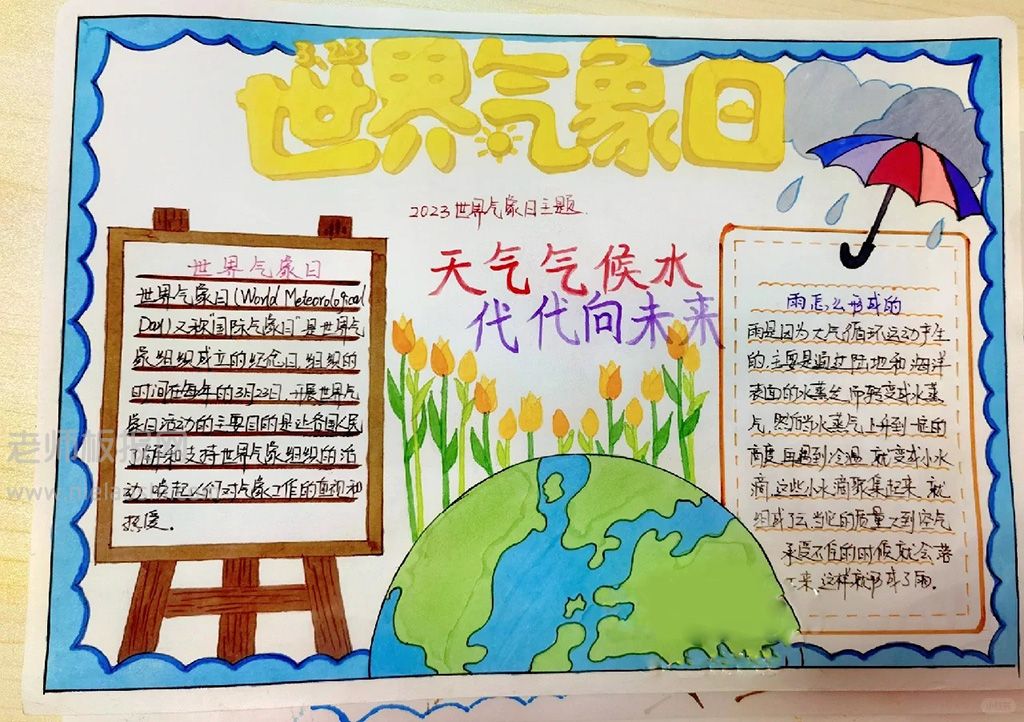 3.23
世界气象日
2023世界气象日主题
天气气候水
代代向未来
世界气象日
世界气象日(World Meteorological
Day)又称"国际气象日"是世界气
象组织成立的纪念日,组织的
时间在每年的3月23日,开展世界气
象日活动的主要目的是让各国人民
了解和支持世界气象组织的活
动,唤起人们对气象工作的重视和
热爱。
雨怎么形成的
雨是因为大气循环运动产生
的,主要是通过陆地和海洋
表面的水蒸发而转变成水蒸
气,然后当水蒸气上升到一定的
高度再遇到冷温 就变成小水
滴,这些小水滴聚集起来 就
组成了云,当它的质量大到空气
承受不住的时候就会落
来,这样就形成了雨。
老师板报网
小红书